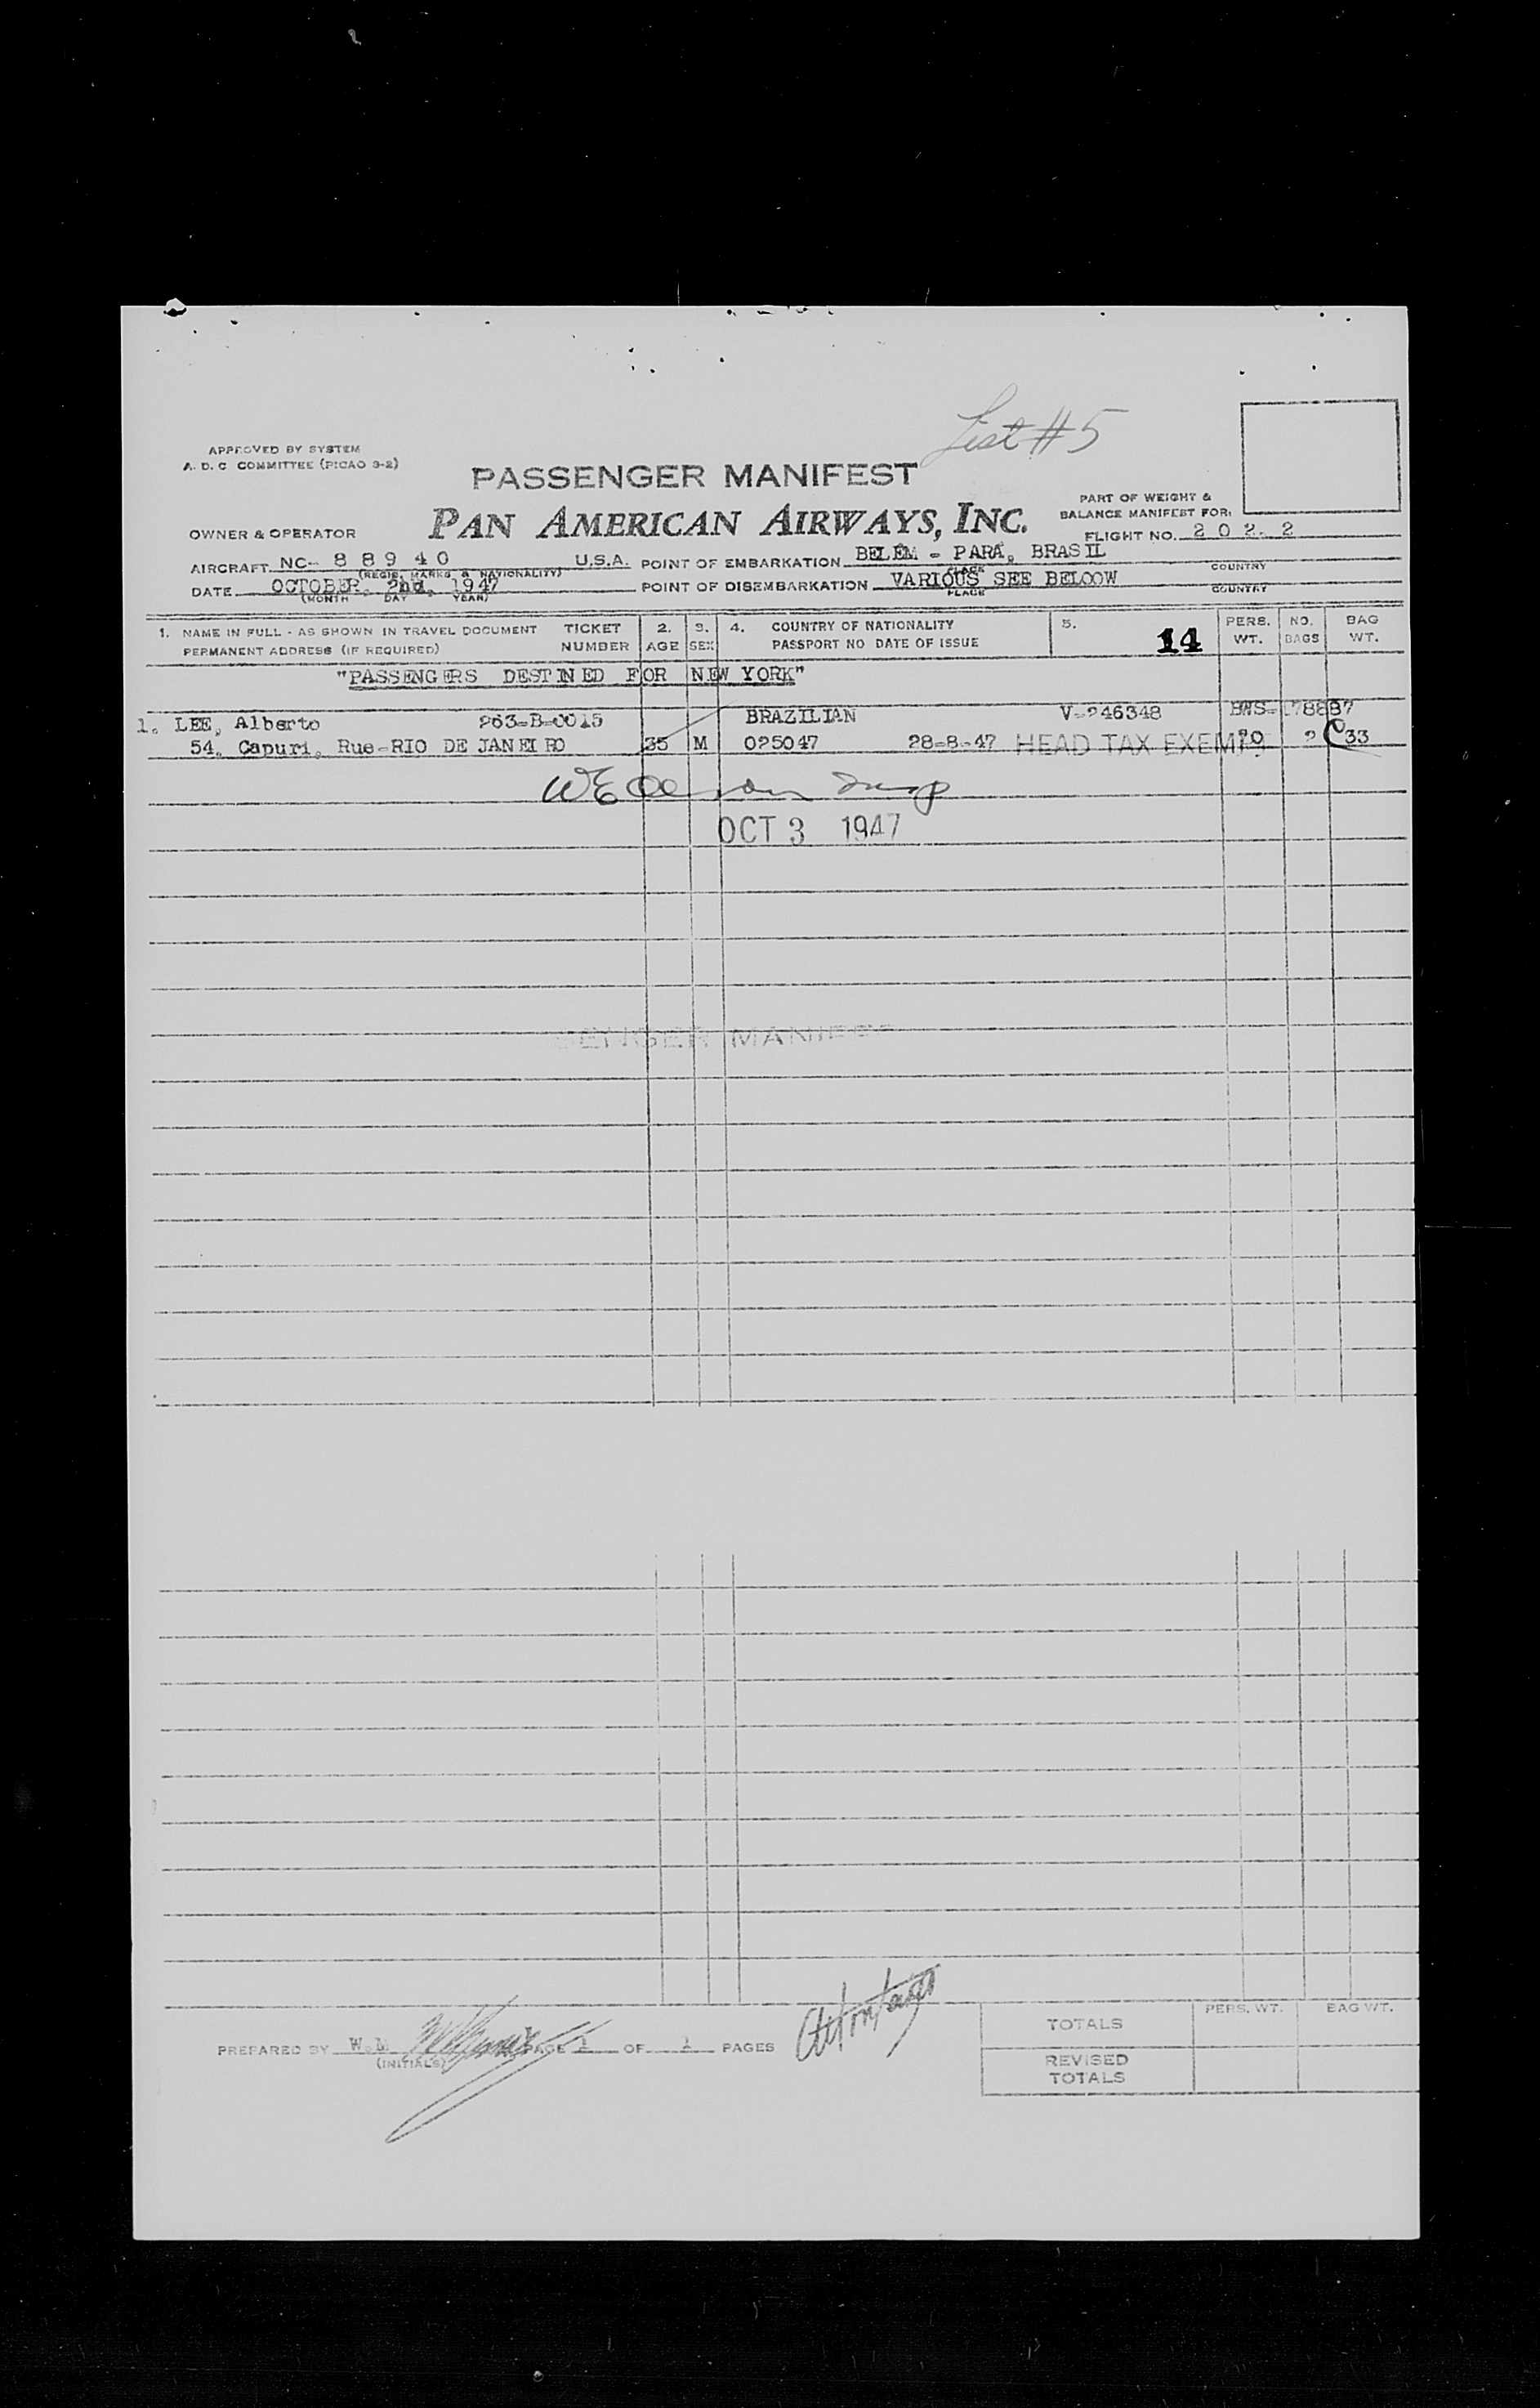 List #5
APPROVED BY SYSTEM
A. D. C COMMITTEE (PICAO 9-2)
PASSENGER MANIFEST
PAN AMERICAN AIRWAYS, INC.
PART OF WEIGHT &
BALANCE MANIFEST FOR:
OWNER & OPERATOR
FLIGHT NO. 2 0 2- 2
AIRCRAFT NC- 8 8 9 4 0 U.S.A. POINT OF EMBARKATION BELÉM - PARÁ, BRASIL
(REGIS. MARKS & NATIONALITY) PLACE COUNTRY
DATE OCTOBER, 2nd, 1947 POINT OF DISEMBARKATION VARIOUS SEE BELOOW
(MONTH DAY YEAR) PLACE COUNTRY
1. NAME IN FULL - AS SHOWN IN TRAVEL DOCUMENT TICKET 2. 3. 4. COUNTRY OF NATIONALITY 5. 14 PERS. NO. BAG
PERMANENT ADDRESS (IF REQUIRED) NUMBER AGE SEX PASSPORT NO DATE OF ISSUE WT. BAGS WT.
"PASSENGERS DESTINED FOR NEW YORK"
1. LEE, Alberto 263-B-0015 BRAZILIAN V-246348 BWS-178887
54. Capuri, Rue-RIO DE JANEIRO 35 M 025047 28-8-47 HEAD TAX EXEMPT 70 2 33
OCT 3 1947
PREPARED BY W.M PAGE 1 OF 1 PAGES
(INITIALS)
PERS. WT. BAG WT.
TOTALS
REVISED
TOTALS